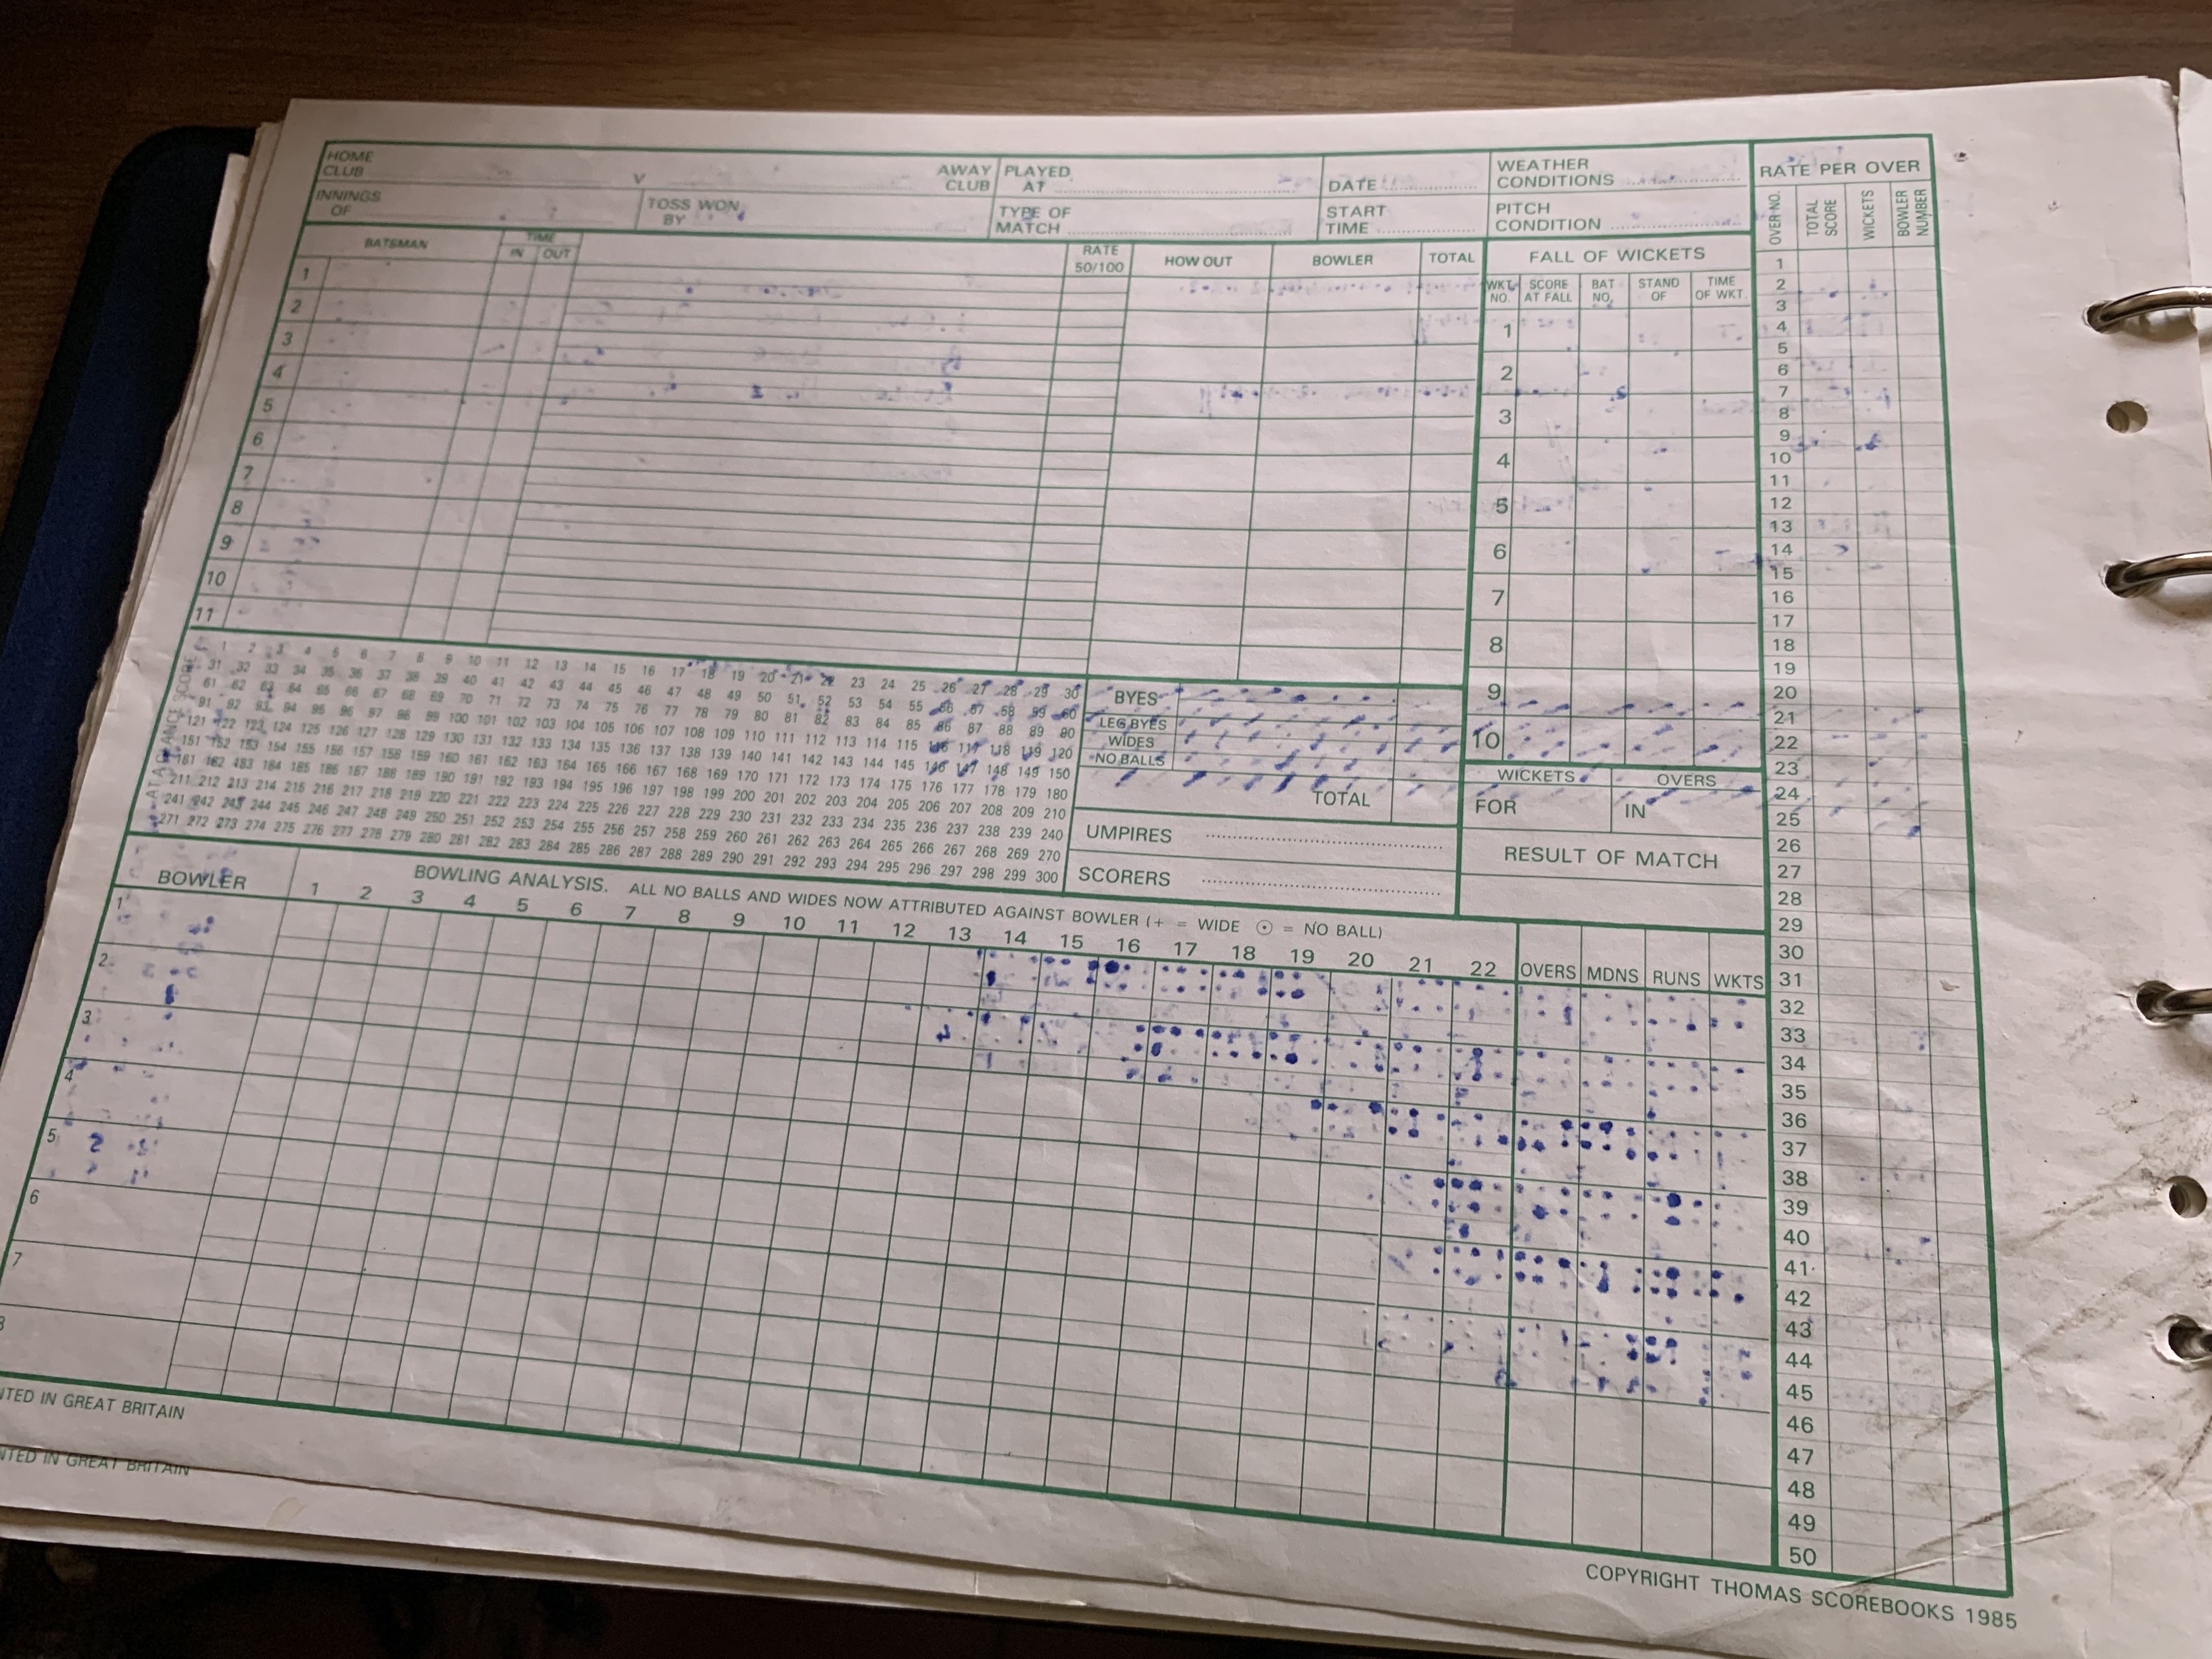 HOME CLUB V AWAY CLUB PLAYED AT DATE WEATHER CONDITIONS
INNINGS OF TOSS WON BY TYPE OF MATCH START TIME PITCH CONDITION
RATE PER OVER
OVER NO. TOTAL SCORE WICKETS BOWLER NUMBER
BATSMAN TIME IN OUT RATE 50/100 HOW OUT BOWLER TOTAL
1
2
3
4
5
6
7
8
9
10
11
FALL OF WICKETS
WKT. NO. SCORE AT FALL BAT NO. STAND OF TIME OF WKT.
1
2
3
4
5
6
7
8
9
10
WICKETS OVERS
FOR IN
RESULT OF MATCH
AT A GLANCE SCORE
1 2 3 4 5 6 7 8 9 10 11 12 13 14 15 16 17 18 19 20 21 22 23 24 25 26 27 28 29 30
31 32 33 34 35 36 37 38 39 40 41 42 43 44 45 46 47 48 49 50 51 52 53 54 55 56 57 58 59 60
61 62 63 64 65 66 67 68 69 70 71 72 73 74 75 76 77 78 79 80 81 82 83 84 85 86 87 88 89 90
91 92 93 94 95 96 97 98 99 100 101 102 103 104 105 106 107 108 109 110 111 112 113 114 115 116 117 118 119 120
121 122 123 124 125 126 127 128 129 130 131 132 133 134 135 136 137 138 139 140 141 142 143 144 145 146 147 148 149 150
151 152 153 154 155 156 157 158 159 160 161 162 163 164 165 166 167 168 169 170 171 172 173 174 175 176 177 178 179 180
181 182 183 184 185 186 187 188 189 190 191 192 193 194 195 196 197 198 199 200 201 202 203 204 205 206 207 208 209 210
211 212 213 214 215 216 217 218 219 220 221 222 223 224 225 226 227 228 229 230 231 232 233 234 235 236 237 238 239 240
241 242 243 244 245 246 247 248 249 250 251 252 253 254 255 256 257 258 259 260 261 262 263 264 265 266 267 268 269 270
271 272 273 274 275 276 277 278 279 280 281 282 283 284 285 286 287 288 289 290 291 292 293 294 295 296 297 298 299 300
BYES
LEG BYES
WIDES
NO BALLS
TOTAL
UMPIRES
SCORERS
BOWLER BOWLING ANALYSIS. ALL NO BALLS AND WIDES NOW ATTRIBUTED AGAINST BOWLER (+ = WIDE ⊙ = NO BALL)
1 2 3 4 5 6 7 8 9 10 11 12 13 14 15 16 17 18 19 20 21 22 OVERS MDNS RUNS WKTS
1
2
3
4
5
6
7
8
1
2
3
4
5
6
7
8
9
10
11
12
13
14
15
16
17
18
19
20
21
22
23
24
25
26
27
28
29
30
31
32
33
34
35
36
37
38
39
40
41
42
43
44
45
46
47
48
49
50
NTED IN GREAT BRITAIN
NTED IN GREAT BRITAIN
COPYRIGHT THOMAS SCOREBOOKS 1985